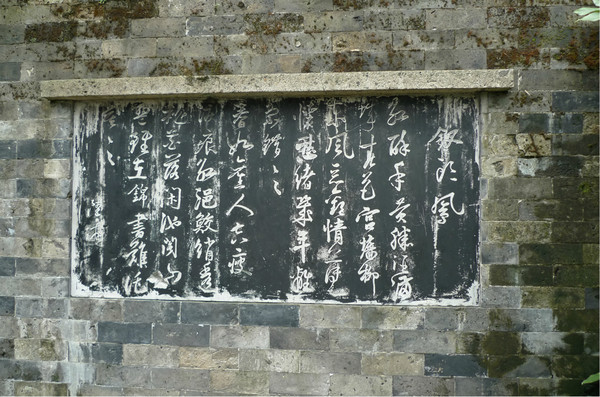 釵頭鳳
紅酥手黃縢酒滿
城春色宮墻柳
東風惡歡情薄一
懷愁緒幾年離
索錯〻
春如舊人空瘦
淚痕紅浥鮫綃透
桃花落閒池閣山
盟雖在錦書難託
莫〻